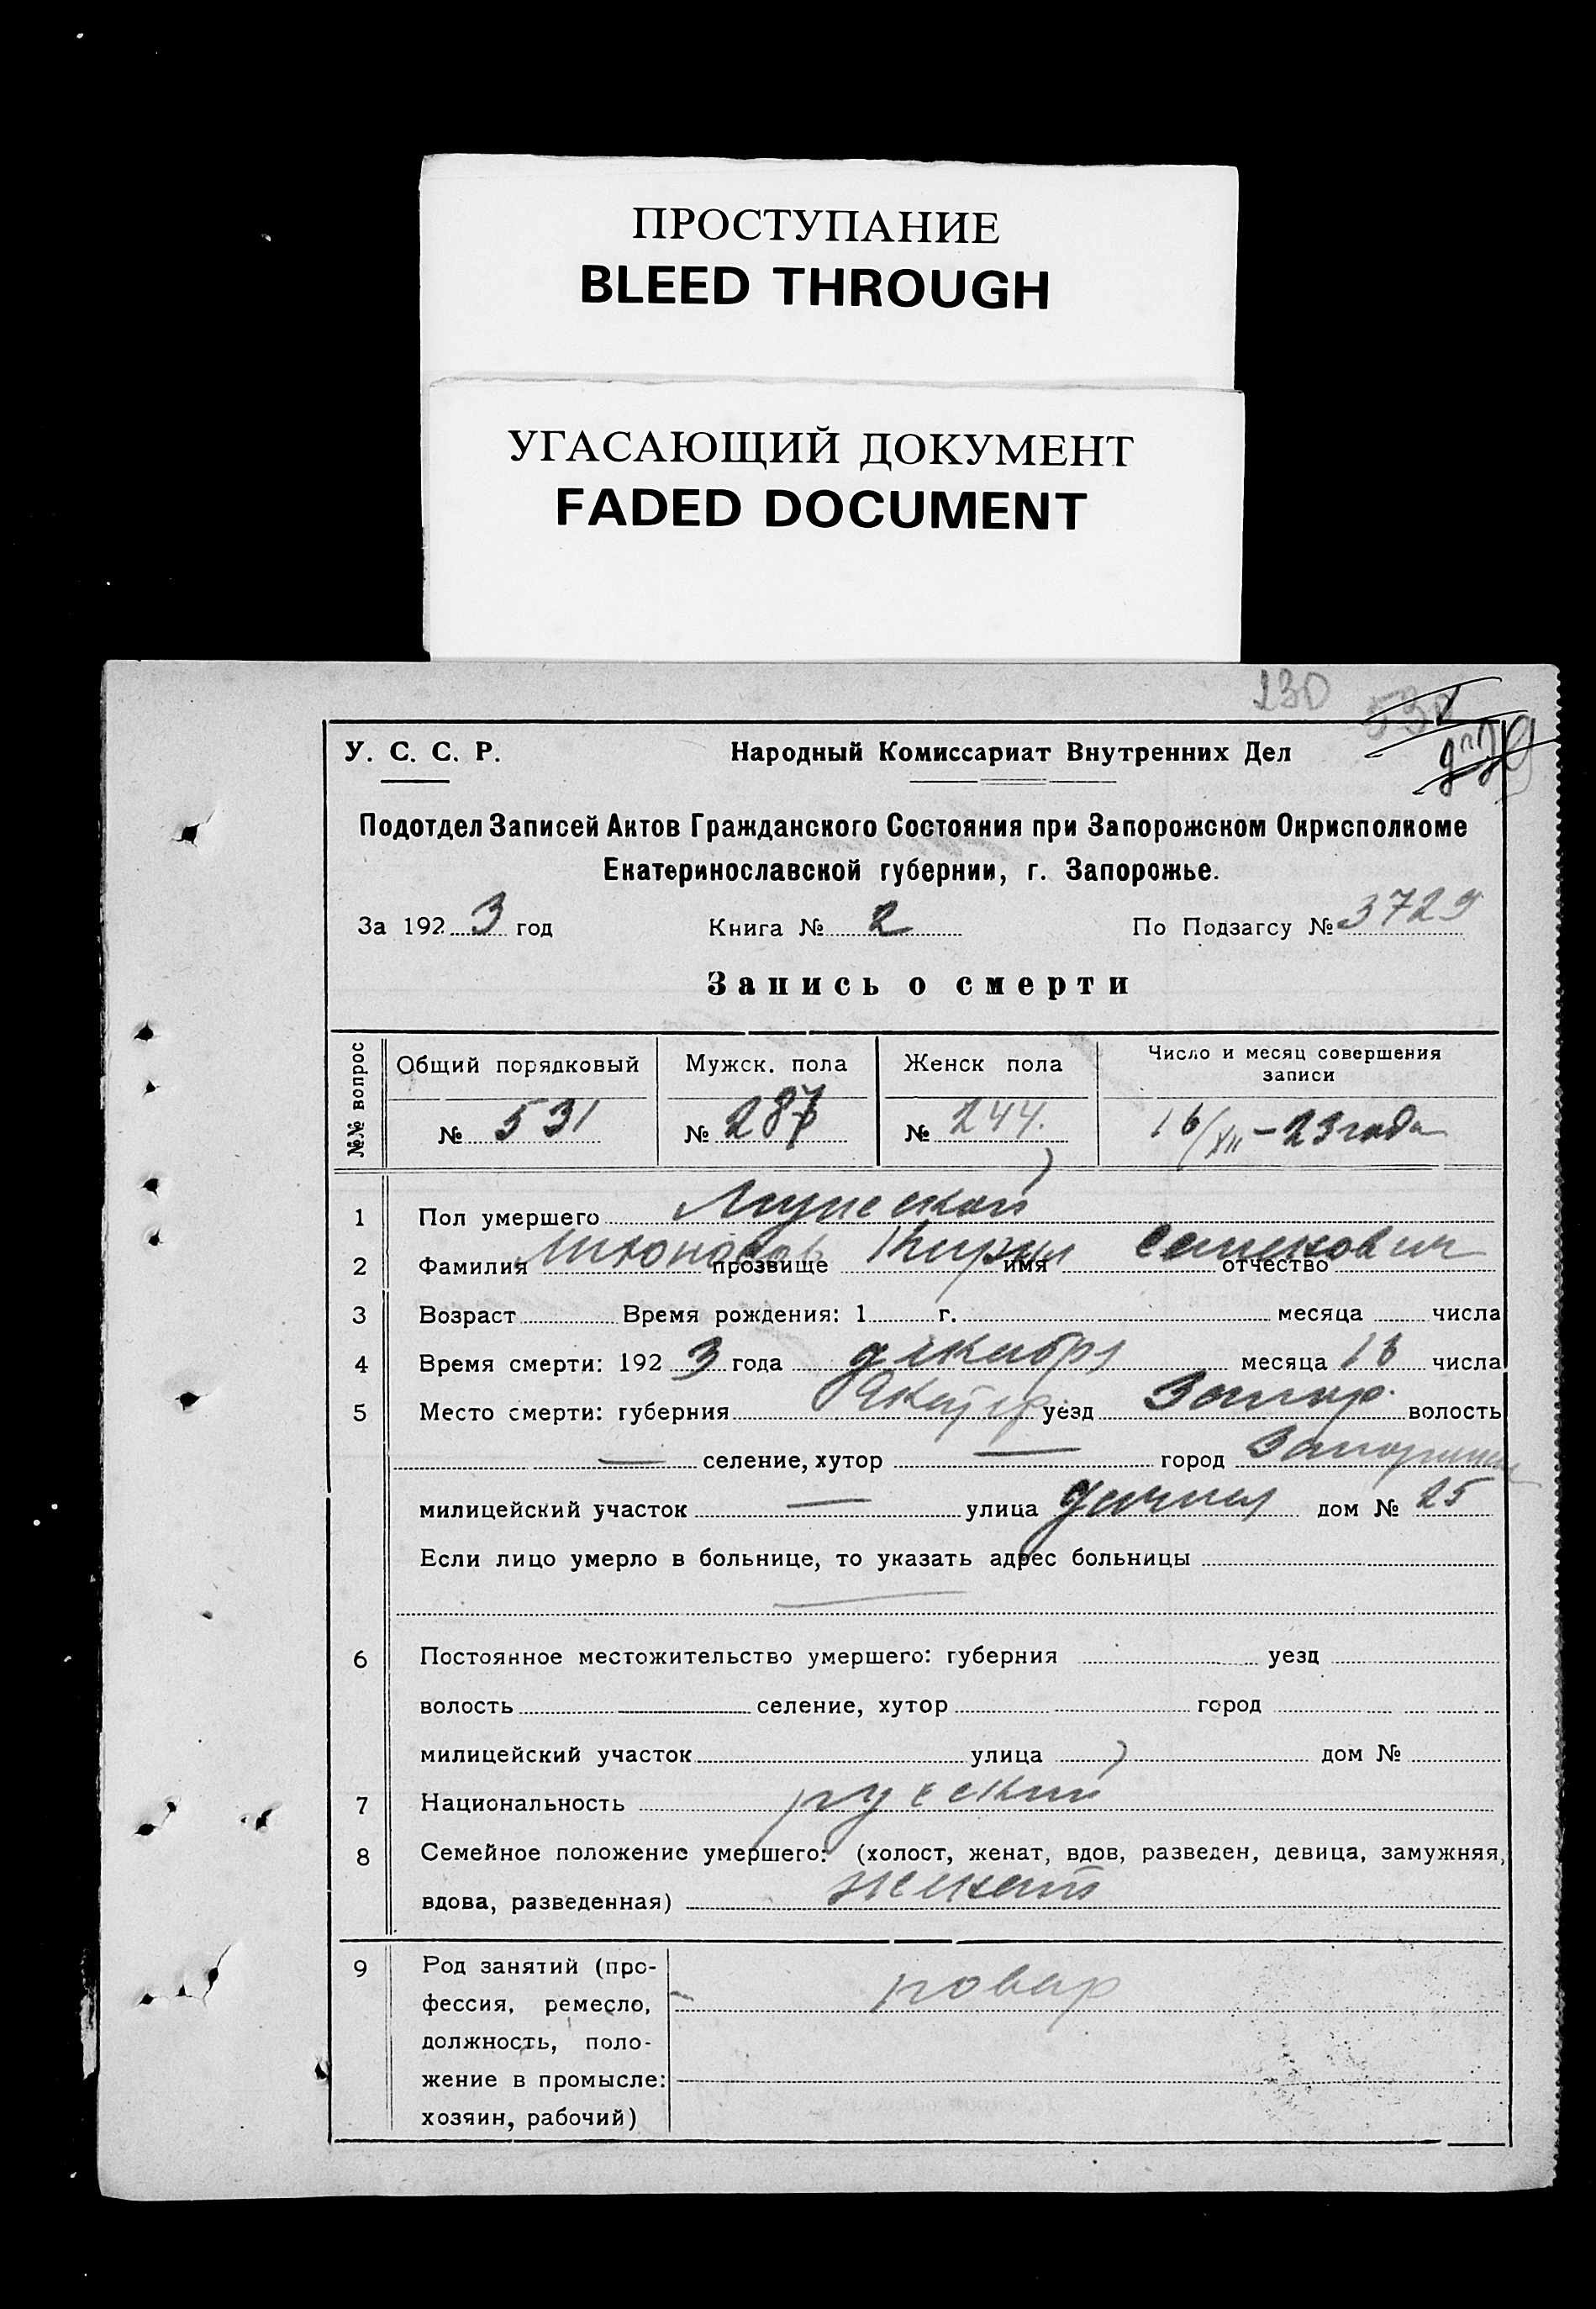 ПРОСТУПАНИЕ
BLEED THROUGH
УГАСАЮЩИЙ ДОКУМЕНТ
FADED DOCUMENT
230 530
У. С. С. Р. Народный Комиссариат Внутренних Дел
Подотдел Записей Актов Гражданского Состояния при Запорожском Окрисполкоме
Екатеринославской губернии, г. Запорожье.
За 192 3 год Книга № 2 По Подзагсу № 3729
Запись о смерти
№№ вопрос Общий порядковый Мужск. пола Женск пола Число и месяц совершения
записи
№ 531 № 287 № 244. 16/XII – 23 года
1 Пол умершего Мужской
2 Фамилия прозвище Кирил имя Семенович отчество
3 Возраст Время рождения: 1 г. месяца числа
4 Время смерти: 192 3 года декабря месяца 16 числа
5 Место смерти: губерния Екатер уезд Запор. волость
— селение, хутор — город Запорожье
милицейский участок — улица дом № 25
Если лицо умерло в больнице, то указать адрес больницы
—
6 Постоянное местожительство умершего: губерния уезд
волость селение, хутор город
милицейский участок улица дом №
7 Национальность русский
8 Семейное положение умершего: (холост, женат, вдов, разведен, девица, замужняя,
вдова, разведенная) женат
9 Род занятий (про-
фессия, ремесло, повар
должность, поло-
жение в промысле:
хозяин, рабочий)